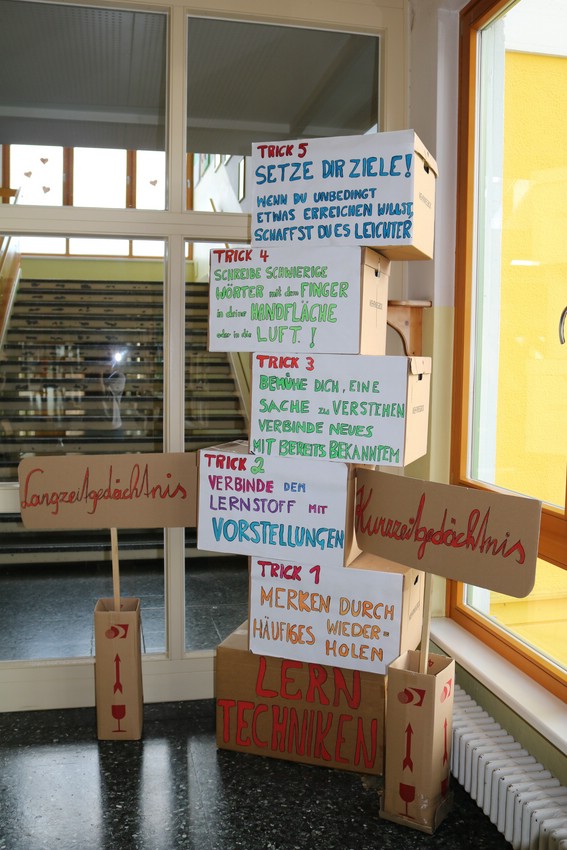 TRICK 5
SETZE DIR ZIELE!
WENN DU UNBEDINGT
ETWAS ERREICHEN WILLST,
SCHAFFST DU ES LEICHTER
TRICK 4
SCHREIBE SCHWIERIGE
WÖRTER mit dem FINGER
in deiner HANDFLÄCHE
oder in die LUFT.!
TRICK 3
BEMÜHE DICH, EINE
SACHE zu VERSTEHEN
VERBINDE NEUES
MIT BEREITS BEKANNTEM
TRICK 2
VERBINDE DEM
LERNSTOFF MIT
VORSTELLUNGEN
Langzeitgedächtnis
Kurzzeitgedächtnis
TRICK 1
MERKEN DURCH
HÄUFIGES WIEDER-
HOLEN
LERN
TECHNIKEN